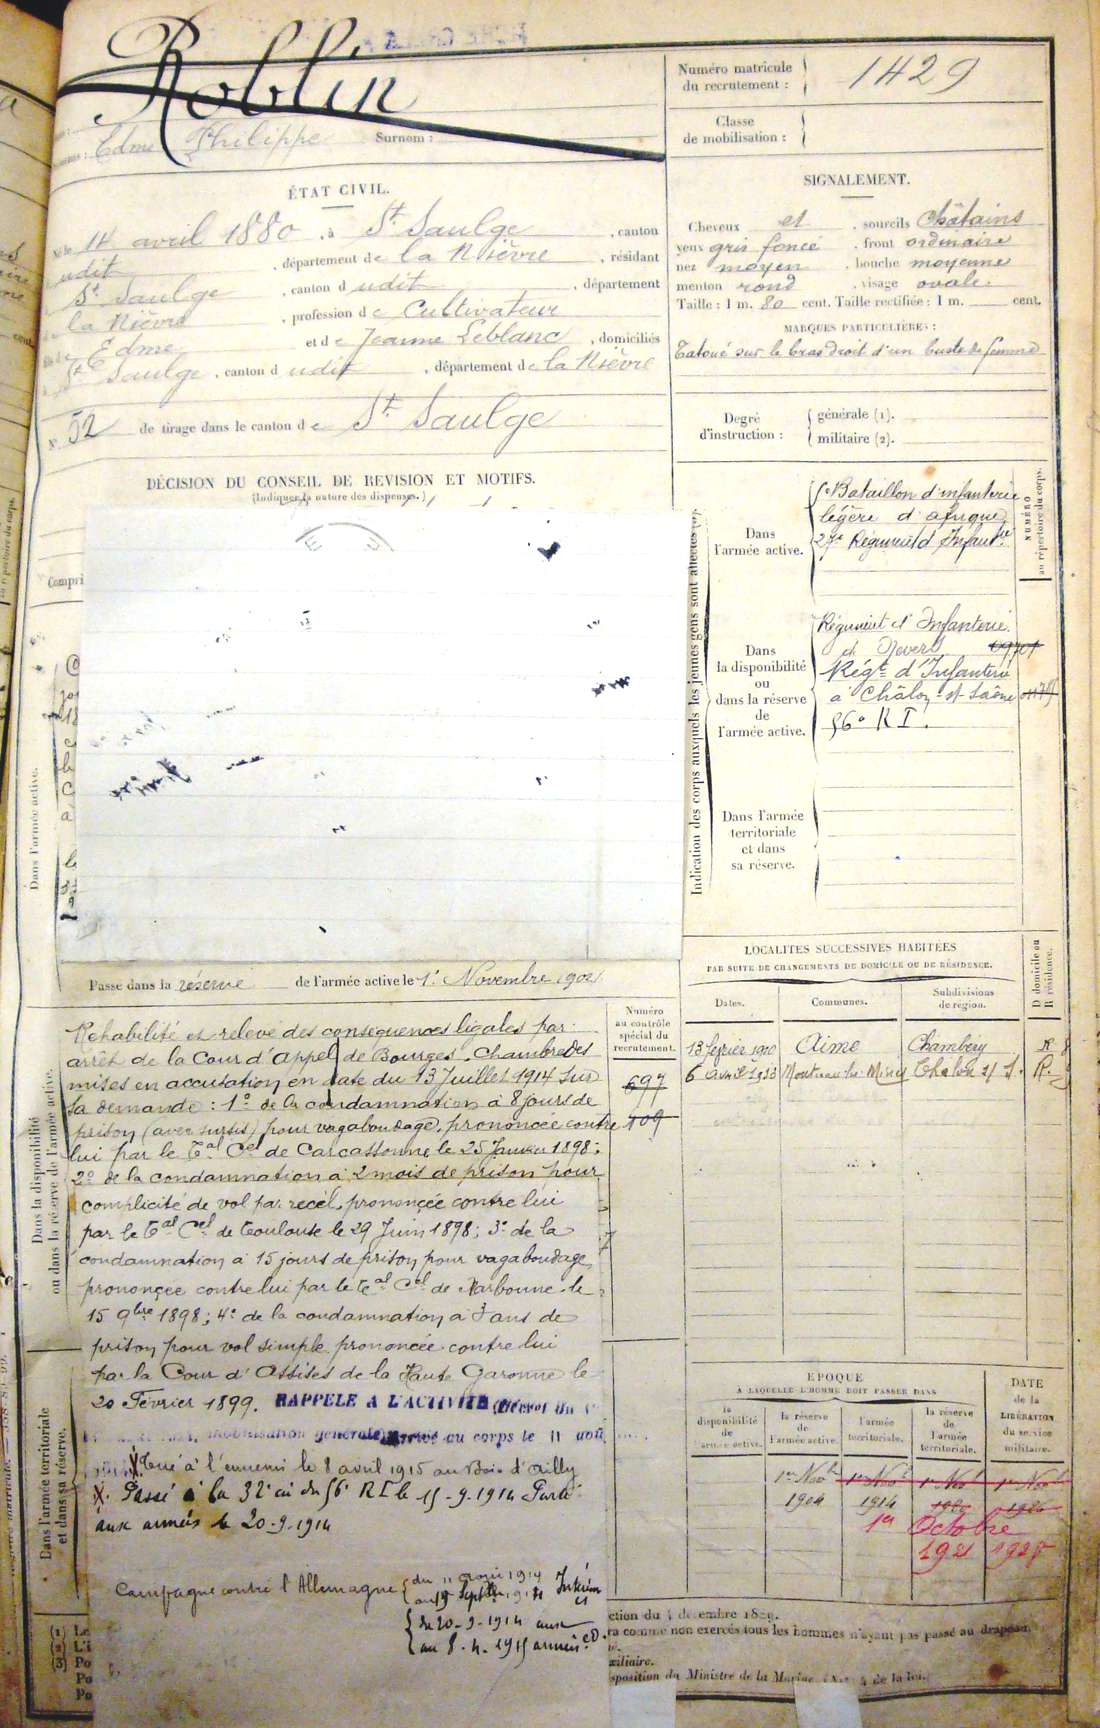 Roblin
Edme Philippe Surnom :
Numéro matricule
du recrutement :
1429
Classe
de mobilisation :
ÉTAT CIVIL.
Né le 14 avril 1880, à St Saulge, canton
udit, département de la Nièvre, résidant
St Saulge, canton dudit, département
la Nièvre, profession de Cultivateur
Edme et de Jeanne Leblanc, domiciliés
St Saulge, canton dudit, département de la Nièvre
N° 52 de tirage dans le canton de St Saulge
SIGNALEMENT.
Cheveux et , sourcils Châtains
yeux gris foncé , front ordinaire
nez moyen , bouche moyenne
menton rond , visage ovale.
Taille : 1 m. 80 cent. Taille rectifiée : 1 m. cent.
MARQUES PARTICULIÈRES :
Tatoué sur le bras droit d'un buste de femme
Degré
d'instruction :
générale (1).
militaire (2).
DÉCISION DU CONSEIL DE REVISION ET MOTIFS.
(Indiquer la nature des dispenses.)
Compri
Dans l'armée active.
Indication des corps auxquels les jeunes gens sont affectés
NUMÉRO
au répertoire du corps.
Dans
l'armée active.
Bataillon d'infanterie
légère d'afrique
27e Régiment d'Infantie
Dans
la disponibilité
ou
dans la réserve
de
l'armée active.
Régiment d'Infanterie
de Nevers
Régt d'Infanterie
à Châlon-s/-Saône
56e R I.
Dans l'armée
territoriale
et dans
sa réserve.
Passé dans la réserve de l'armée active le 1er Novembre 1904
LOCALITÉS SUCCESSIVES HABITÉES
PAR SUITE DE CHANGEMENTS DE DOMICILE OU DE RÉSIDENCE.
D domicile ou
R résidence.
Dates.
Communes.
Subdivisions
de région.
13 fevrier 1910 Aime Chambéry R
6 Montceau-les-Mines Châlon s/ S. R.
Numéro
au contrôle
spécial du
recrutement.
697
109
Dans la disponibilité
ou dans la réserve de l'armée active.
Réhabilité et relevé des conséquences légales par
arrêt de la Cour d'appel de Bourges, Chambre des
mises en accusation en date du 13 Juillet 1914 sur
sa demande : 1° de la condamnation à 8 jours de
prison (avec sursis) pour vagabondage, prononcée contre
lui par le Tal Cel de Carcassonne le 25 Janvier 1898 ;
2° de la condamnation à 2 mois de prison pour
complicité de vol par recel, prononcée contre lui
par le Tal Cel de Toulouse le 29 Juin 1898 ; 3° de la
condamnation à 15 jours de prison pour vagabondage
prononcée contre lui par le Tal Cel de Narbonne le
15 9bre 1898 ; 4° de la condamnation à 3 ans de
prison pour vol simple prononcée contre lui
par la Cour d'Assises de la Haute Garonne le
20 Février 1899. RAPPELÉ A L'ACTIVITÉ (Décret du
mobilisation générale) arrivé au corps le 11 août
1914 X Tué à l'ennemi le 8 avril 1915 au Bois d'Ailly
X. Passé à la 32e cie du 56e RI le 15-9-1914 Parti
aux armées le 20-9-1914
Dans l'armée territoriale
et dans sa réserve.
Campagne contre l'Allemagne
du 11 août 1914
au 19 Septbre 1914 Intérieur
du 20-9-1914 aux
au 8-4-1915 armées
EPOQUE
A LAQUELLE L'HOMME DOIT PASSER DANS
DATE
de la
LIBÉRATION
du service
militaire.
la
disponibilité
de
l'armée active.
la réserve
de
l'armée active.
l'armée
territoriale.
la réserve
de
l'armée
territoriale.
1er Novbre 1er Novbre 1er Novbre 1er Novbre
1904 1914 1920 1926
1er Octobre
1921
(1) Le
(2) L'i
(3) Po
Po
Po
ction du 4 décembre 1889.
ra comme non exercés tous les hommes n'ayant pas passé au drapeau
xiliaire.
sposition du Ministre de la Marine de la loi.